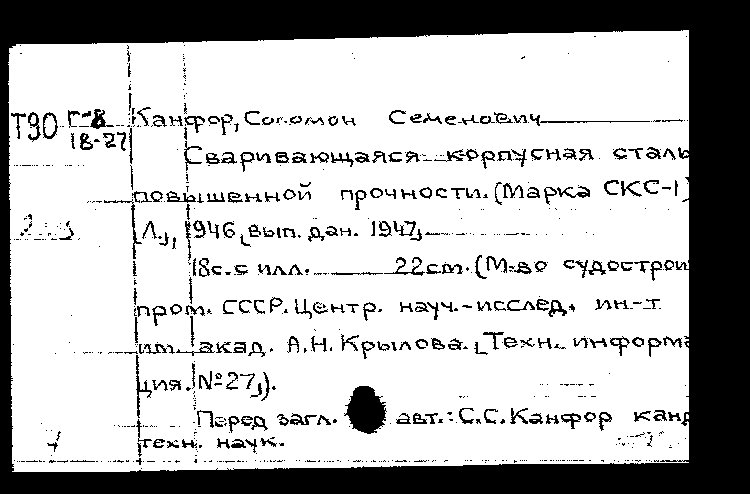 Т90 Г-8 Канфор, Соломон Семенович
18-27
Сваривающаяся корпусная сталь
повышенной прочности. (Марка СКС-1)
[Л.], 1946, [вып. дан. 1947]
18с. с илл. 22cm. (М-во судострои
пром. СССР. Центр. науч.-исслед. ин-т
им. акад. А.Н. Крылова. [Техн. информа
ция. №27]).
Перед загл. авт.: С.С. Канфор канд
техн. наук.